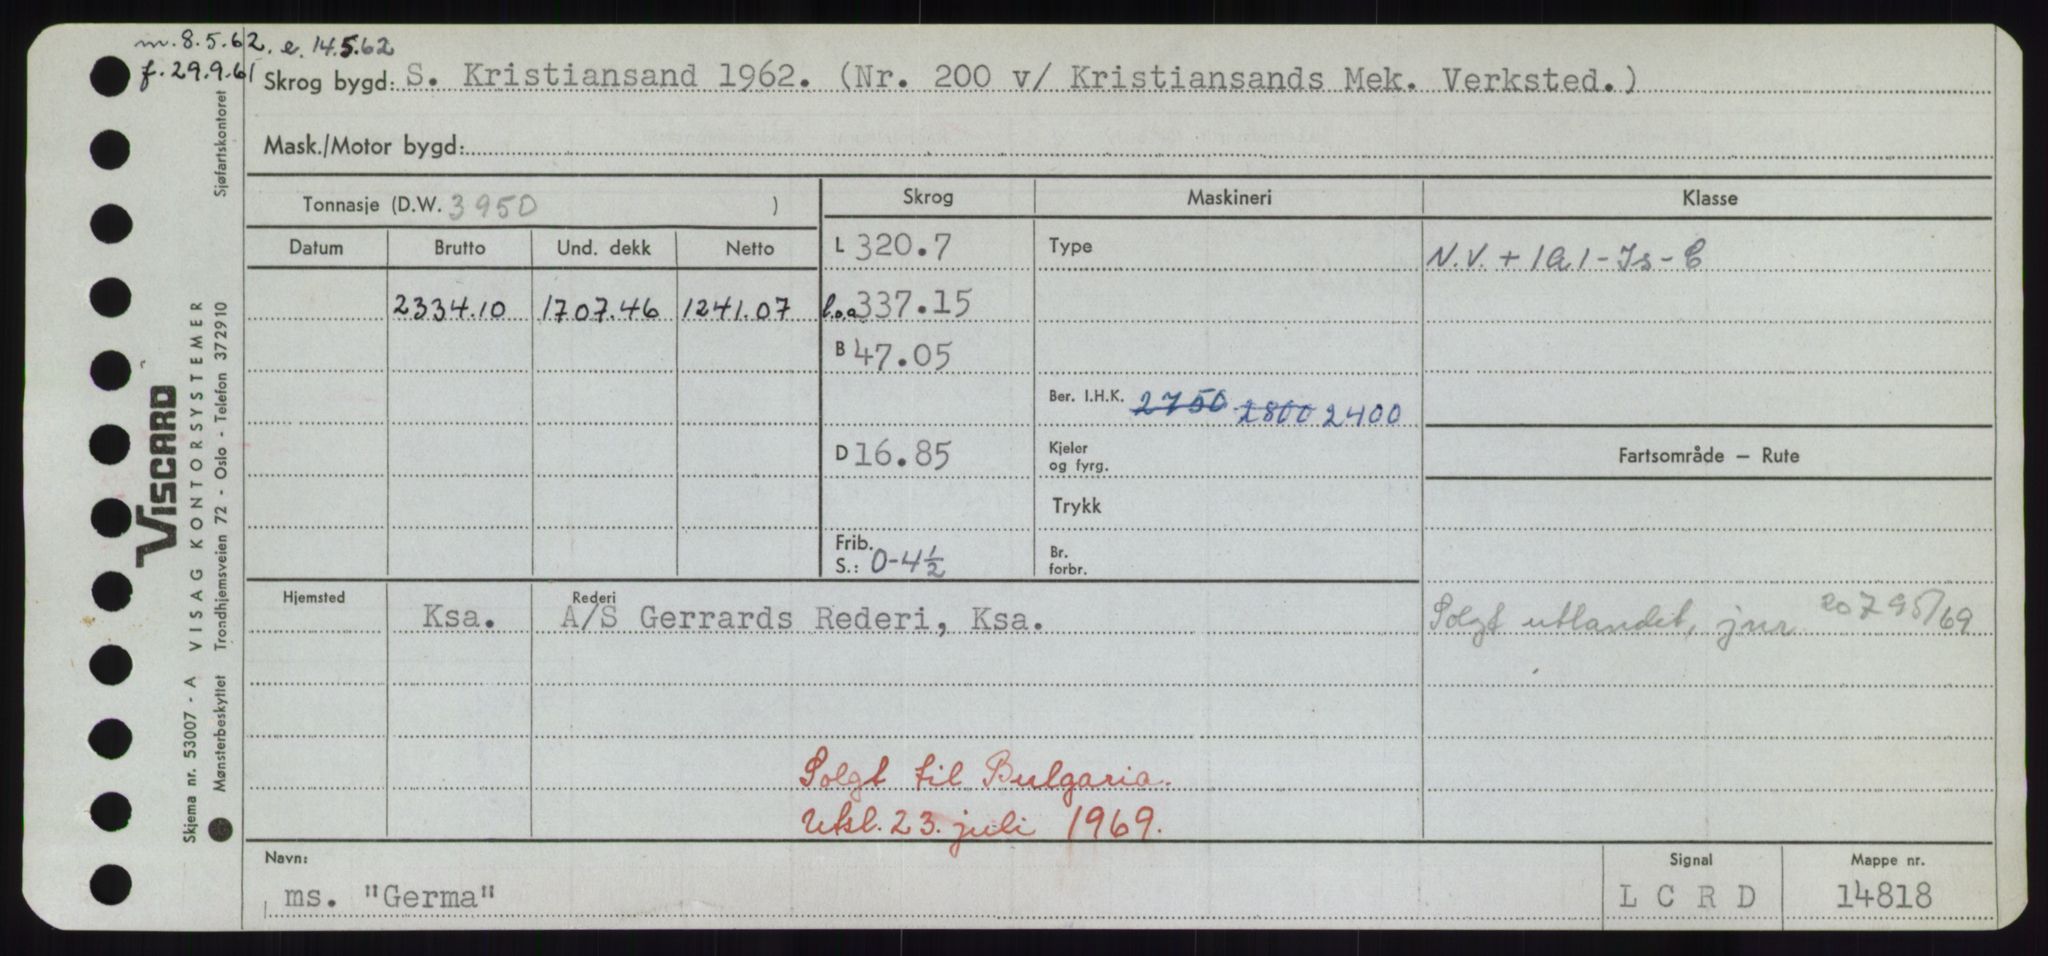 m. 8.5.62. e. 14.5.62
f. 29.9.61
Skrog bygd: S. Kristiansand 1962. (Nr. 200 v/ Kristiansands Mek. Verksted.)
Mask./Motor bygd:
Tonnasje (D.W. 3950 )
Skrog
Maskineri
Klasse
Datum
Brutto
Und. dekk
Netto
L 320.7
Type
N.V. + 1A1-Is-C
2334.10
1707.46
1241.07
l.o.a 337.15
B 47.05
Ber. I.H.K. 2750 2800 2400
D 16.85
Kjeler
og fyrg.
Fartsområde – Rute
Trykk
Frib.
S.: 0-4½
Br.
forbr.
Hjemsted
Ksa.
Rederi
A/S Gerrards Rederi, Ksa.
Solgt utlandet, jnr 20795/69
Solgt til Bulgaria.
Utsl. 23. juli 1969.
Navn:
ms. "Germa"
Signal
L C R D
Mappe nr.
14818
VISCARD
Skjema nr. 53007 - A VISAG KONTORSYSTEMER
Mønsterbeskyttet Trondhjemsveien 72 - Oslo - Telefon 372910 Sjøfartskontoret